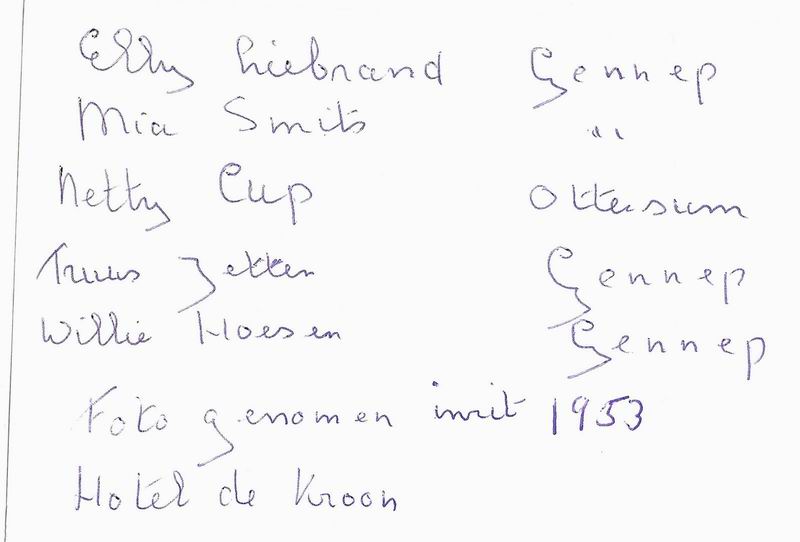 Elly Liebrand Gennep
Mia Smits "
Netty Cup Ottersum
Truus Jetten Gennep
Willie Hoesen Gennep
Foto genomen inrit 1953
Hotel de Kroon